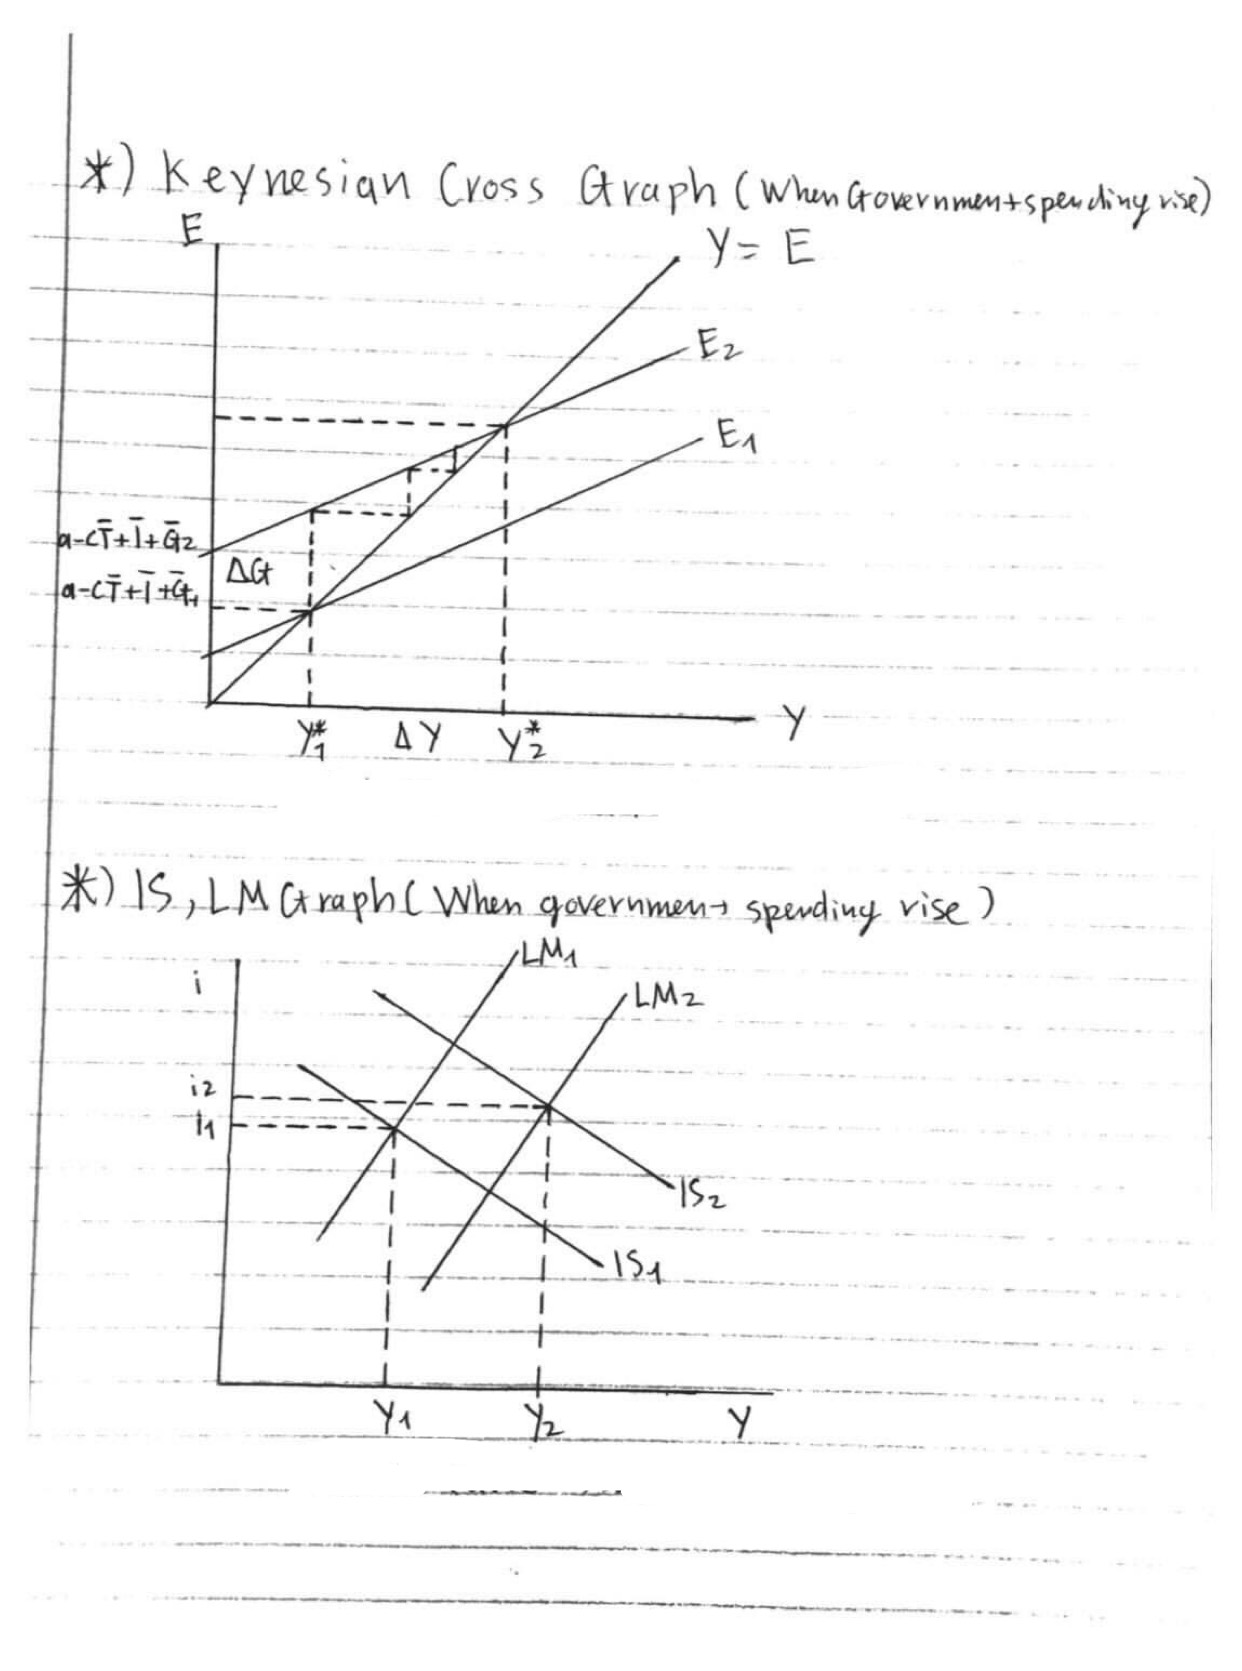 *) Keynesian Cross Graph (When Government spending rise)
E
Y = E
E2
E1
a-cT̄+Ī+Ḡ2
ΔG
a-cT̄+Ī+Ḡ1
Y
Y1* ΔY Y2*
*) IS, LM Graph ( When government spending rise )
LM1
i
LM2
i2
i1
IS2
IS1
Y1 Y2 Y